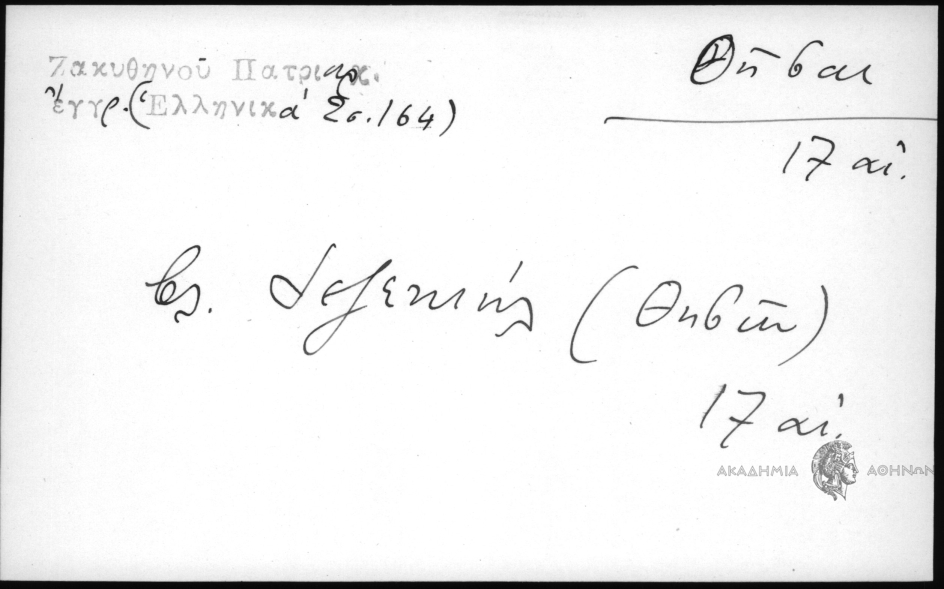 Ζακυθηνοῦ Πατριαρχ.
ἔγγρ. (Ἑλληνικά Σσ. 164)
Θῆβαι
17 αἰ.
βλ. (Θηβῶν)
17 αἰ.
ΑΚΑΔΗΜΙΑ ΑΘΗΝΩΝ